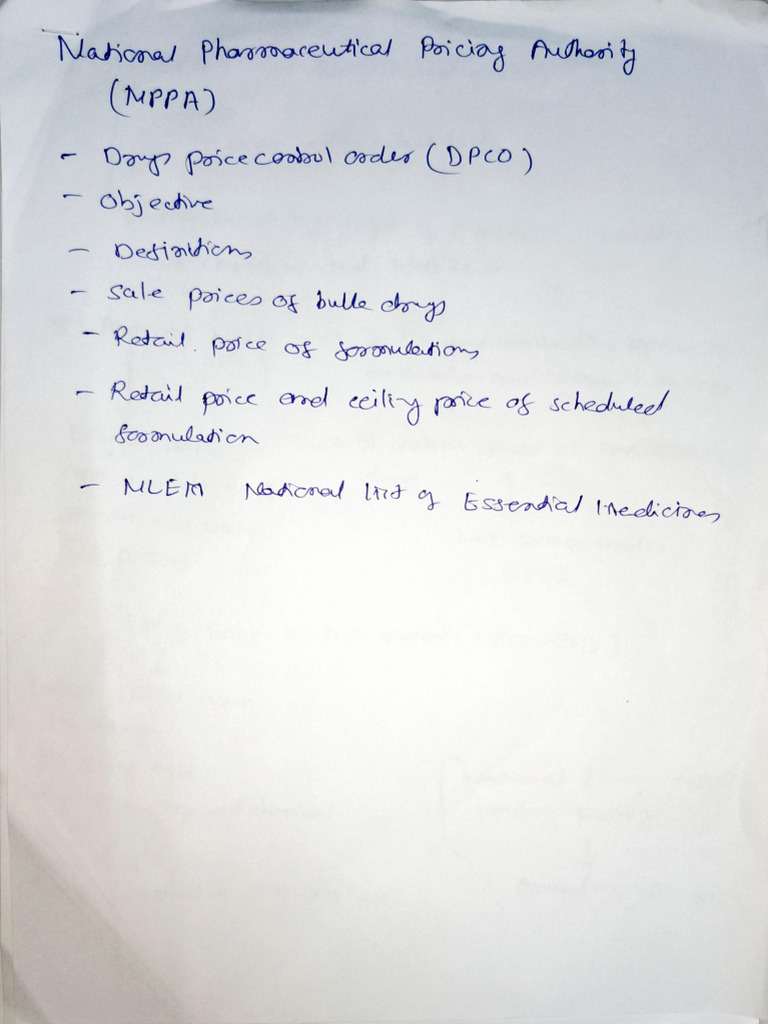 National Pharmaceutical Pricing Authority
(NPPA)
- Drugs price control order (DPCO)
- Objective
- Definitions
- Sale prices of bulk drugs
- Retail price of formulations
- Retail price and ceiling price of scheduled
formulation
- NLEM National list of Essential Medicines